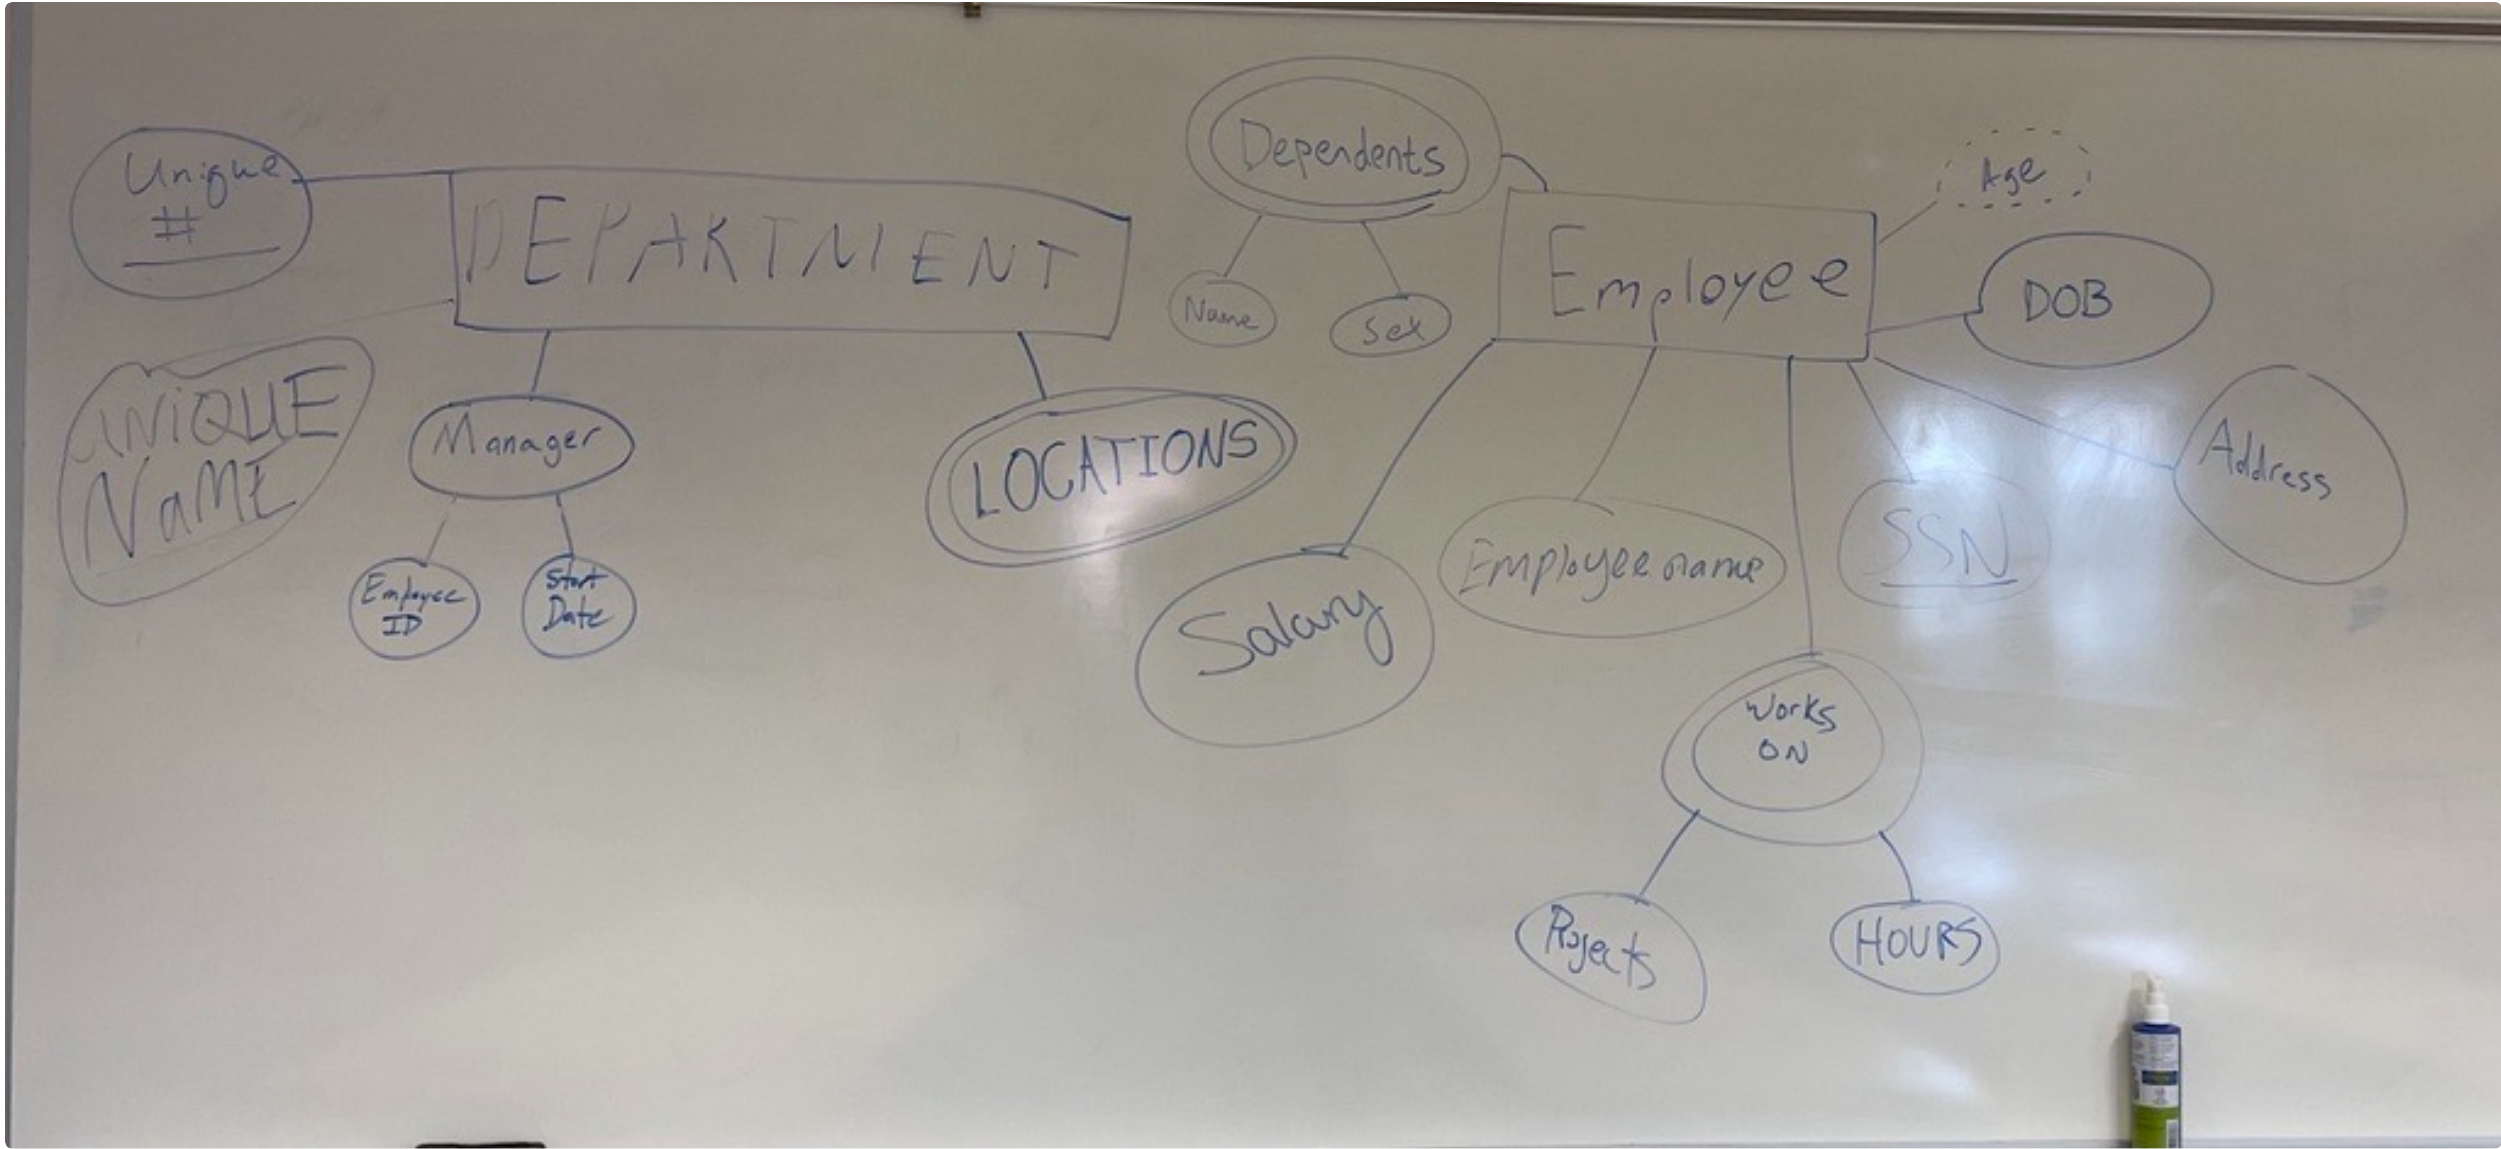 Unique
#
DEPARTMENT
UNIQUE
NaME
Manager
Employee
ID
Start
Date
LOCATIONS
Dependents
Name
Sex
Employee
Age
DOB
Address
SSN
Employee name
Salary
Works
ON
Projects
HOURS